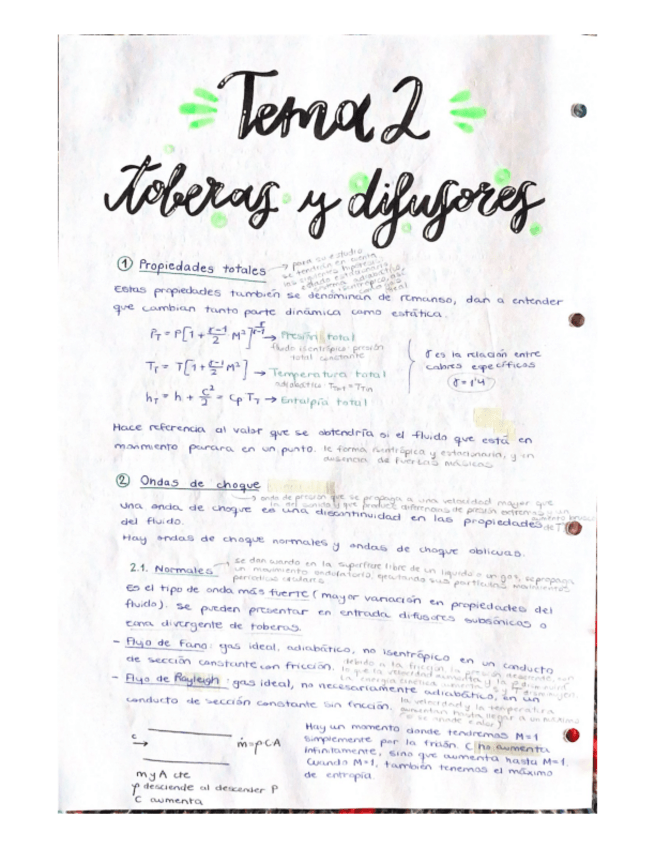 Tema 2
toberas y difusores
① Propiedades totales → para su estudio
se tendrán en cuenta
las siguientes hipótesis:
estado estacionario,
Estas propiedades también se denominan de remanso, dan a entender
que cambian tanto parte dinámica como estática.
P_T = P[1 + (γ-1)/2 M²]^(γ/(γ-1)) → Presión total
fluido isentrópico: presión
total constante
T_T = T[1 + (γ-1)/2 M²] → Temperatura total
adiabático
h_T = h + c²/2 = Cp T_T → Entalpía total
γ es la relación entre
calores específicos
γ = 1'4
Hace referencia al valor que se obtendría si el fluido que está en
movimiento parara en un punto. de forma isentrópica y estacionaria, y en
ausencia de fuerzas másicas
② Ondas de choque
→ onda de presión que se propaga a una velocidad mayor que
Una onda de choque es una discontinuidad en las propiedades
del fluido.
Hay ondas de choque normales y ondas de choque oblicuas.
2.1. Normales → se dan cuando en la superficie libre de un líquido o un gas, se propaga
un movimiento ondulatorio, ejecutando sus partículas movimientos
Es el tipo de onda más fuerte (mayor variación en propiedades del
fluido). Se pueden presentar en entrada difusores subsónicos o
zona divergente de toberas.
- Flujo de Fano: gas ideal, adiabático, no isentrópico en un conducto
de sección constante con fricción. debido a la fricción la presión desciende, con
lo que la velocidad aumenta
- Flujo de Rayleigh: gas ideal, no necesariamente adiabático, en un
la velocidad y la temperatura
conducto de sección constante sin fricción. aumentan hasta llegar a un máximo
c →
ṁ = ρCA
m y A cte
ρ desciende al descender P
C aumenta
Hay un momento donde tendremos M=1
simplemente por la fricción. C no aumenta
infinitamente, sino que aumenta hasta M=1.
Cuando M=1, también tenemos el máximo
de entropía.